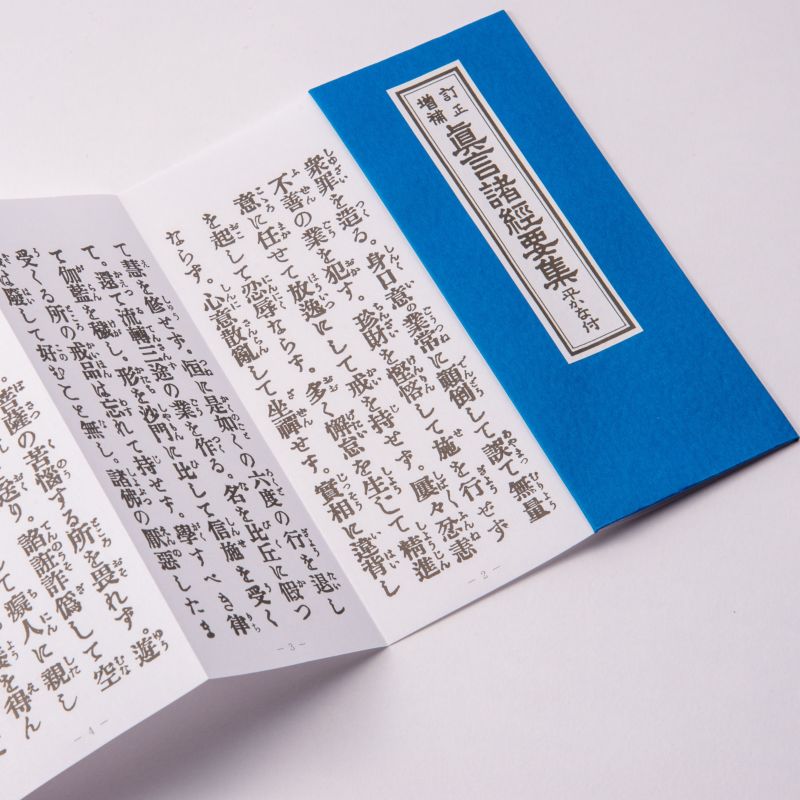 訂正
増補
眞言諸經要集
平がな付
衆罪を造る。身口意の業常に顛倒して誤て無量
不善の業を犯す。珍財を慳悋して施を行せず
意に任せて放逸にして戒を持せず。屡々忿恚
を起して忍辱ならず。多く懈怠を生して精進
ならず。心意散亂して坐禪せず。實相に違背し
-2-
て慧を修せず。恒に是如くの六度の行を退し
て。還て流轉三途の業を作る。名を比丘に假つ
て伽藍を穢し。形を沙門に比して信施を受く
受くる所の戒品は忘れて持せず。學すべき律
は廢して好むこと無し。諸佛の厭惡したま
-3-
菩薩の苦惱する所を畏れず。遊
送り。諂誑詐僞して空
して癡人に親し
を得ん
-4-